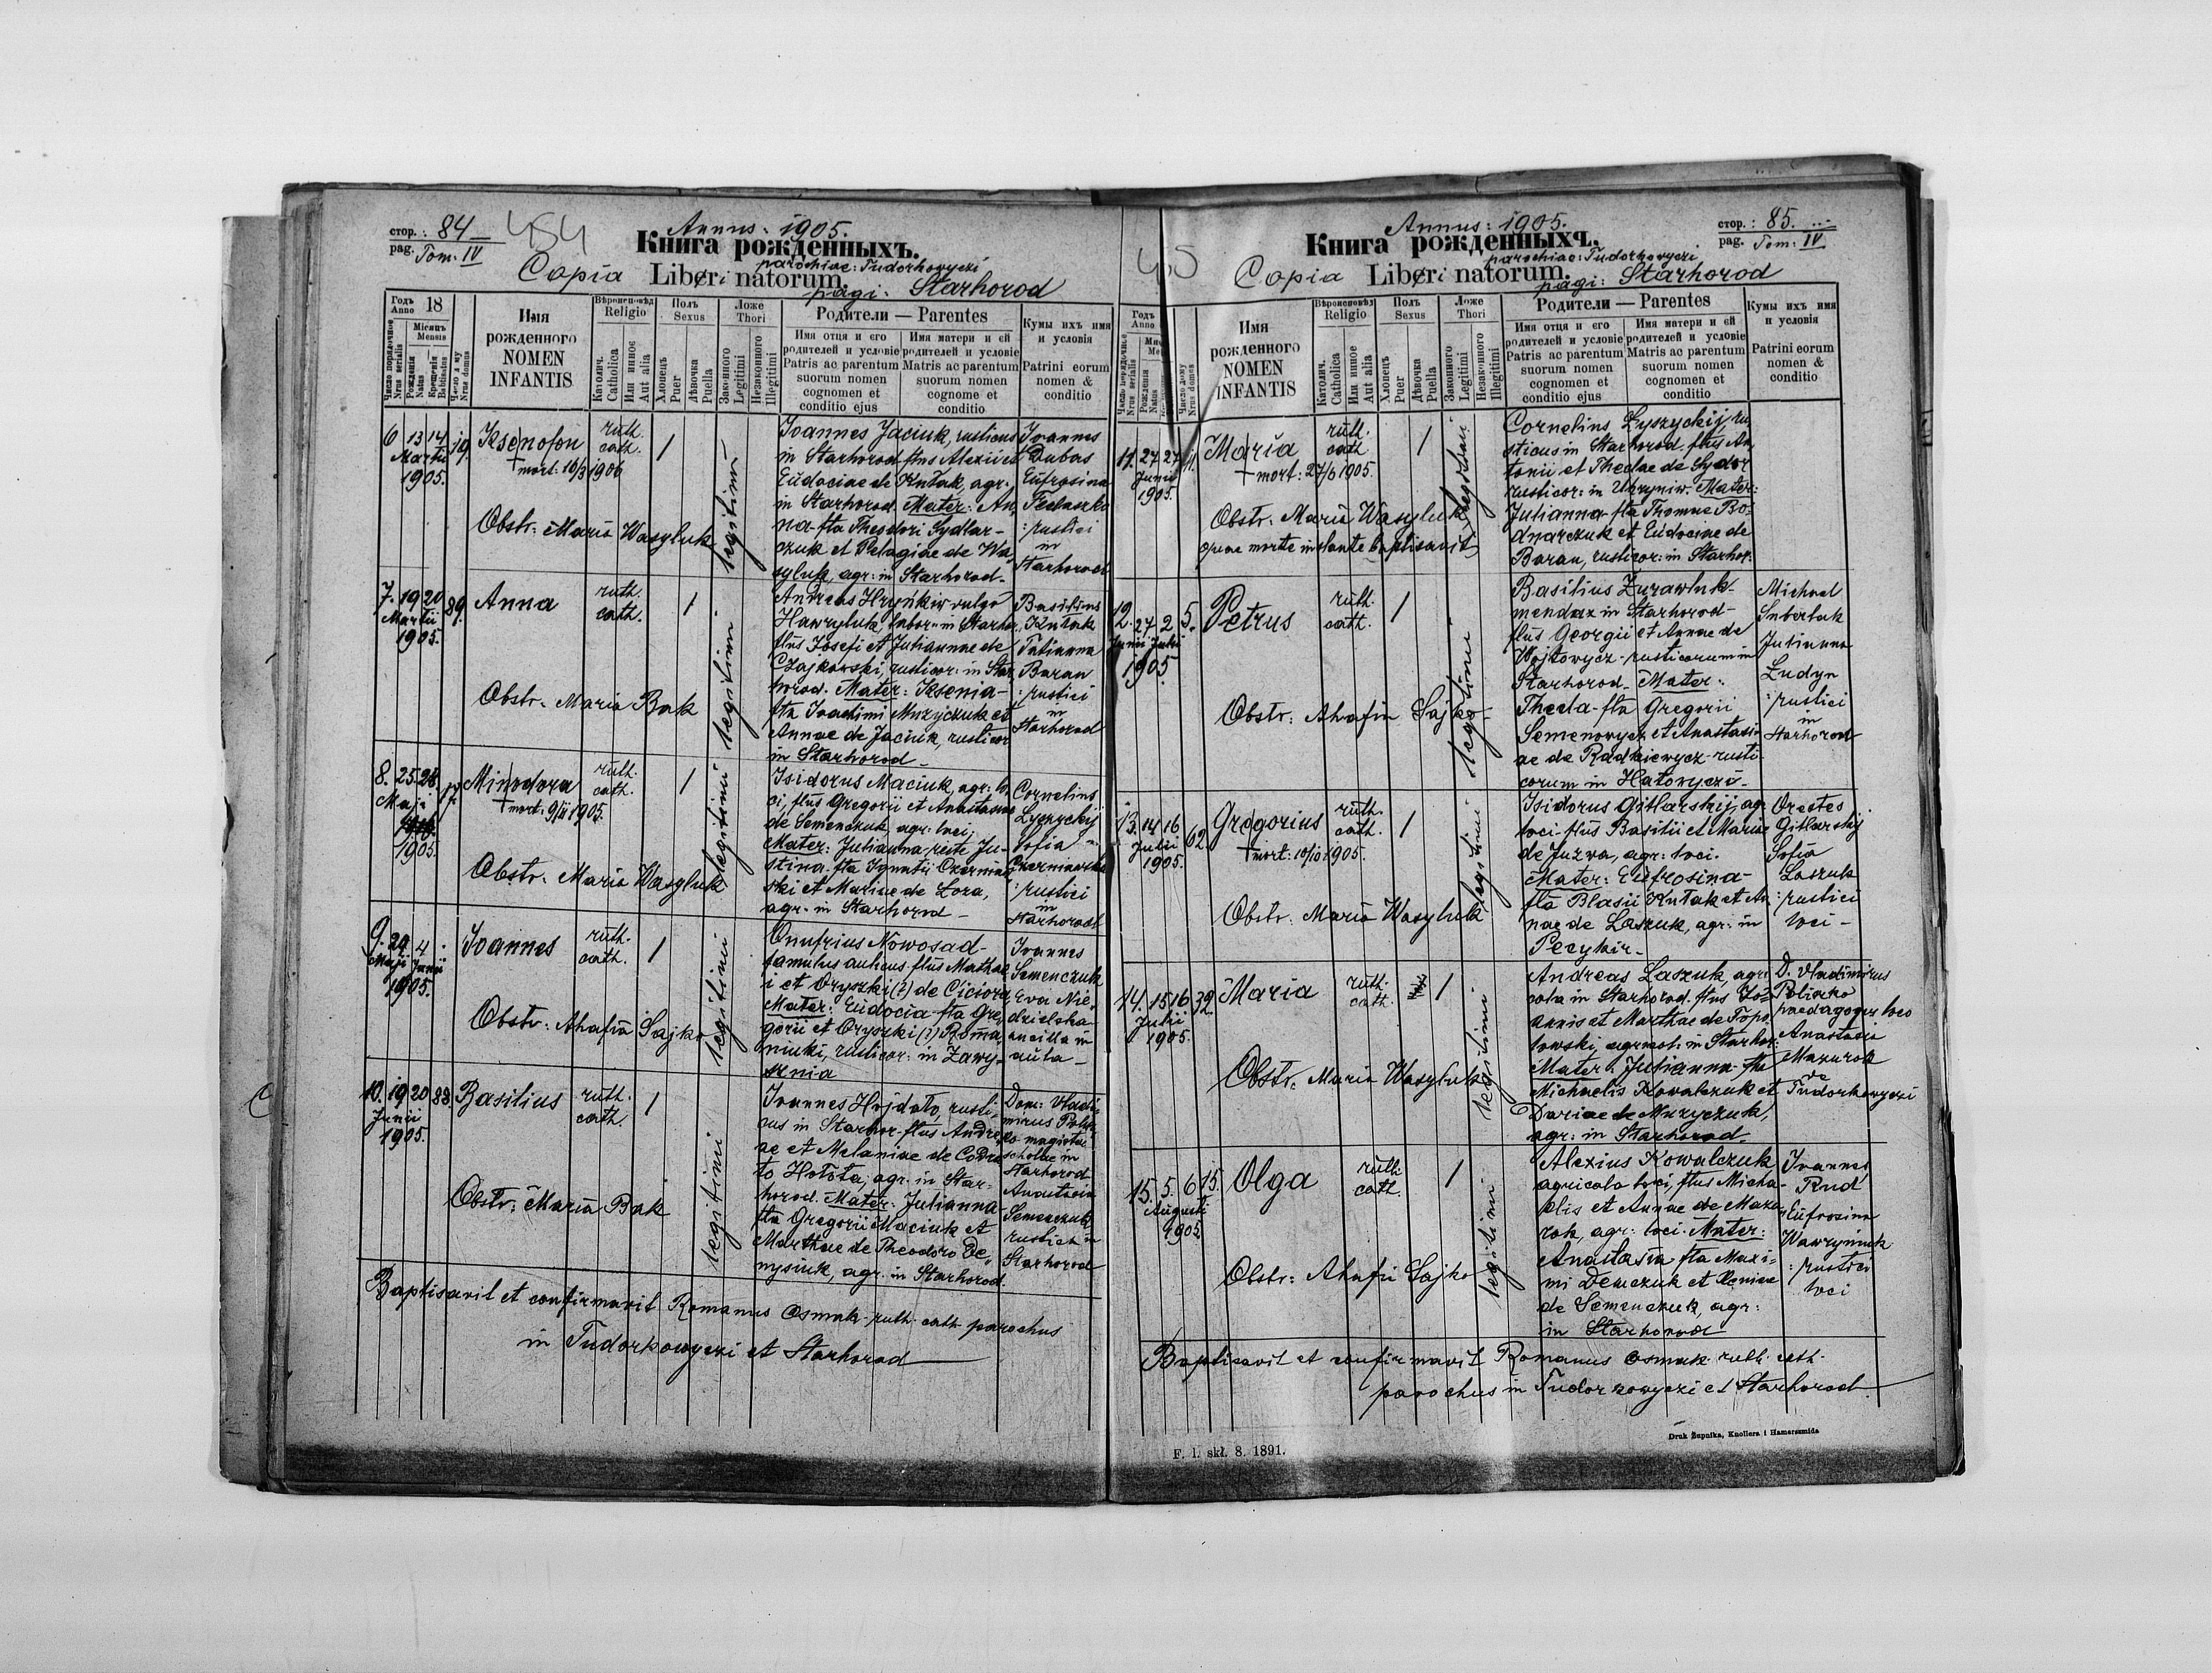 стор.: 84
pag. Tom: IV
454
Annus: 1905.
Книга рожденныхъ.
parochiae: Tudorkowyczi
Copia Libri natorum.
pagi: Starhorod
Годъ Anno 18
Число порядочное Nrus serialis
Мѣсяцъ Mensis
Рожденія Natus
Крещенія Babtisatus
Число дому Nrus domus
Имя рожденного
NOMEN INFANTIS
Вѣроисповѣд Religio
Католич. Catholica
Или инное Aut alia
Полъ Sexus
Хлопець Puer
Дѣвочка Puella
Ложе Thori
Законного Legitimi
Незаконного Illegitimi
Родители — Parentes
Имя отця и его родителей и условіе
Patris ac parentum suorum nomen cognomen et conditio ejus
Имя матери и ей родителей и условіе
Matris ac parentum suorum nomen cognome et conditio
Кумы ихъ имя и условія
Patrini eorum nomen & conditio
6 13 14 19.
Martii
1905.
Ksenofon
† mort: 16/3 1906
ruth.
cath.
1
legitimi
Obstr: Maria Wasyluk
Joannes Jaciuk, rusticus
in Starhorod flus Alexii et
Eudociae de Kutak, agr.
in Starhorod. Mater: An
na fta Theodori Sydlar-
czuk et Pelagiae de Wa
syluk, agr: in Starhorod.
Joannes
Dubas
Eufrosina
Fedaszko
: rustici
in
Starhorod
7. 19 20 89.
Martii
1905.
Anna
ruth.
cath.
1
legitimi
Obstr. Maria Bak
Andreas Hryńkiw vulgo
Hawryluk, labor. in Starhor.
flus Josefi et Juliannae de
Czajkowski, rusticor: in Star
horod. Mater: Ksenia-
fta Joachimi Muzyczuk et
Annae de Jaciuk, rusticor
in Starhorod
Basilius
Kutak
Tatianna
Baran
: rustici
in
Starhorod
8. 25 28
Maji
1905.
Minodora
† mort: 9/11 1905.
ruth.
cath.
1
legitimi
Obstr. Maria Wasyluk
Isidorus Maciuk, agr: lo
ci, flus Gregorii et Anastasiae
de Semenczuk, agr: loci,
Mater: Julianna recte Ju-
stina fta Ignatii Czerniaw
ski et Marinae de Loza,
agr. in Starhorod
Cornelius
Lyszyckij
Sofia
Czerniawska
: rustici
in
Starhorod
9. 29 4
Maji Junii
1905.
Joannes
ruth.
cath.
1
legitimi
Obstr: Ahafia Sajko
Onufrius Nowosad-
famulus aulicus flus Mathae
i et Oryszki (?) de Ciciora
Mater: Eudocia fta Gre
gorii et Oryszki (?) Roma
niuki, rusticor: in Zawy-
sznia
Joannes
Semenczuk
Eva Nie
dzielska
ancilla in
aula
10. 19 20 88.
Junii
1905.
Basilius
ruth.
cath.
1
legitimi
Obstr: Maria Bak
Joannes Hojdalo, rusti
cus in Starhor flus Andre
ae et Melaniae de Codra
to Hołota, agr. in Star=
horod. Mater: Julianna
fta Gregorii Maciuk et
Marthae de Theodoro De
nysiuk, agr. in Starhorod.
Dom: Vladi
mirus Polij
ko magister
scholae in
Starhorod
Anastasia
Semenczuk
rustica in
Starhorod
Baptisavit et confirmavit Romanus Osmak ruth. cath. parochus
in Tudorkowyczi et Starhorod
стор.: 85.
pag. Tom: IV
Annus: 1905.
Книга рожденныхъ.
parochiae: Tudorkowyczi
Copia Libri natorum.
pagi: Starhorod
Годъ Anno
Число порядочное Nrus serialis
Рожденія Natus
Число дому Nrus domus
Имя рожденного
NOMEN INFANTIS
Вѣроисповѣд Religio
Католич. Catholica
Или инное Aut alia
Полъ Sexus
Хлопець Puer
Дѣвочка Puella
Ложе Thori
Законного Legitimi
Незаконного Illegitimi
Родители — Parentes
Имя отця и его родителей и условіе
Patris ac parentum suorum nomen cognomen et conditio ejus
Имя матери и ей родителей и условіе
Matris ac parentum suorum nomen cognomen et conditio
Кумы ихъ имя и условія
Patrini eorum nomen & conditio
11. 27 27 11.
Junii
1905.
Maria
† mort: 27/6 1905.
ruth.
cath
1
legitimi
Obstr: Maria Wasyluk
quae morte instante baptisavit
Cornelius Lyszyckij, ru
sticus in Starhorod. flus An
tonii et Theclae de Sydor
rusticor: in Uhryniw. Mater:
Julianna fta Thomae Bo-
dnarczuk et Eudociae de
Baran, rusticor: in Starhor.
12. 27 2 5.
Junii Julii
1905
Petrus
ruth.
cath.
1
legitimi
Obstr: Ahafia Sajko
Basilius Zurawluk-
mendax in Starhorod-
flus Georgii et Annae de
Wojtowycz - rusticorum in
Starhorod. Mater:
Thecla-fta Gregorii
Semenowycz et Anastasi
ae de Radkiewycz rusti
corum in Hatowyczi.
Michael
Suberlak
Julianna
Ludyn
: rustici
in
Starhorod
13. 14 16 62.
Julii
1905.
Gregorius
† mort: 10/10 1905.
ruth.
cath.
1
legitimi
Obstr: Maria Wasyluk
Isidorus Gitlarskij, agr
loci flus Basilii et Mariae
de Juzwa, agr: loci.
Mater: Eufrosina-
fta Blasii Kutak et An
nae de Laszuk, agr: in
Peczyhir-
Orestes
Gitlarskij
Sofia
Laszuk
: rustici
loci
14. 15 16 39.
Julii
1905.
Maria
ruth.
cath.
1
legitimi
Obstr. Maria Wasyluk
Andreas Laszuk, agri
cola in Starhorod. flus Jo
annis et Marthae de Topo
lowski, agricol: in Starhor.
Mater: Julianna, fta
Michaelis Kowalczuk et
Dariae de Muzyczuk,
agr: in Starhorod.
D. Vladimirus
Polijko
paedagogus loco
Anastasia
Mazurok
de
Tudorkowyczi
15. 5. 6 15.
Augusti
1905
Olga
ruth
cath.
1
legitimi
Obstr: Ahafia Sajko
Alexius Kowalczuk
agricola loci, flus Micha-
elis et Annae de Mazu
rok, agr: loci. Mater:
Anastasia fta Maxi=
mi Demczuk et Xeniae
de Semenczuk, agr:
in Starhorod
Joannes
Rud
Eufrosina
Wawryniuk
: rustici
loci
Baptisavit et confirmavit Romanus Osmak ruth. cath.
parochus in Tudorkowyczi et Starhorod.
F. l. skł. 8. 1891.
Druk Żupnika, Knollera i Hamerszmida